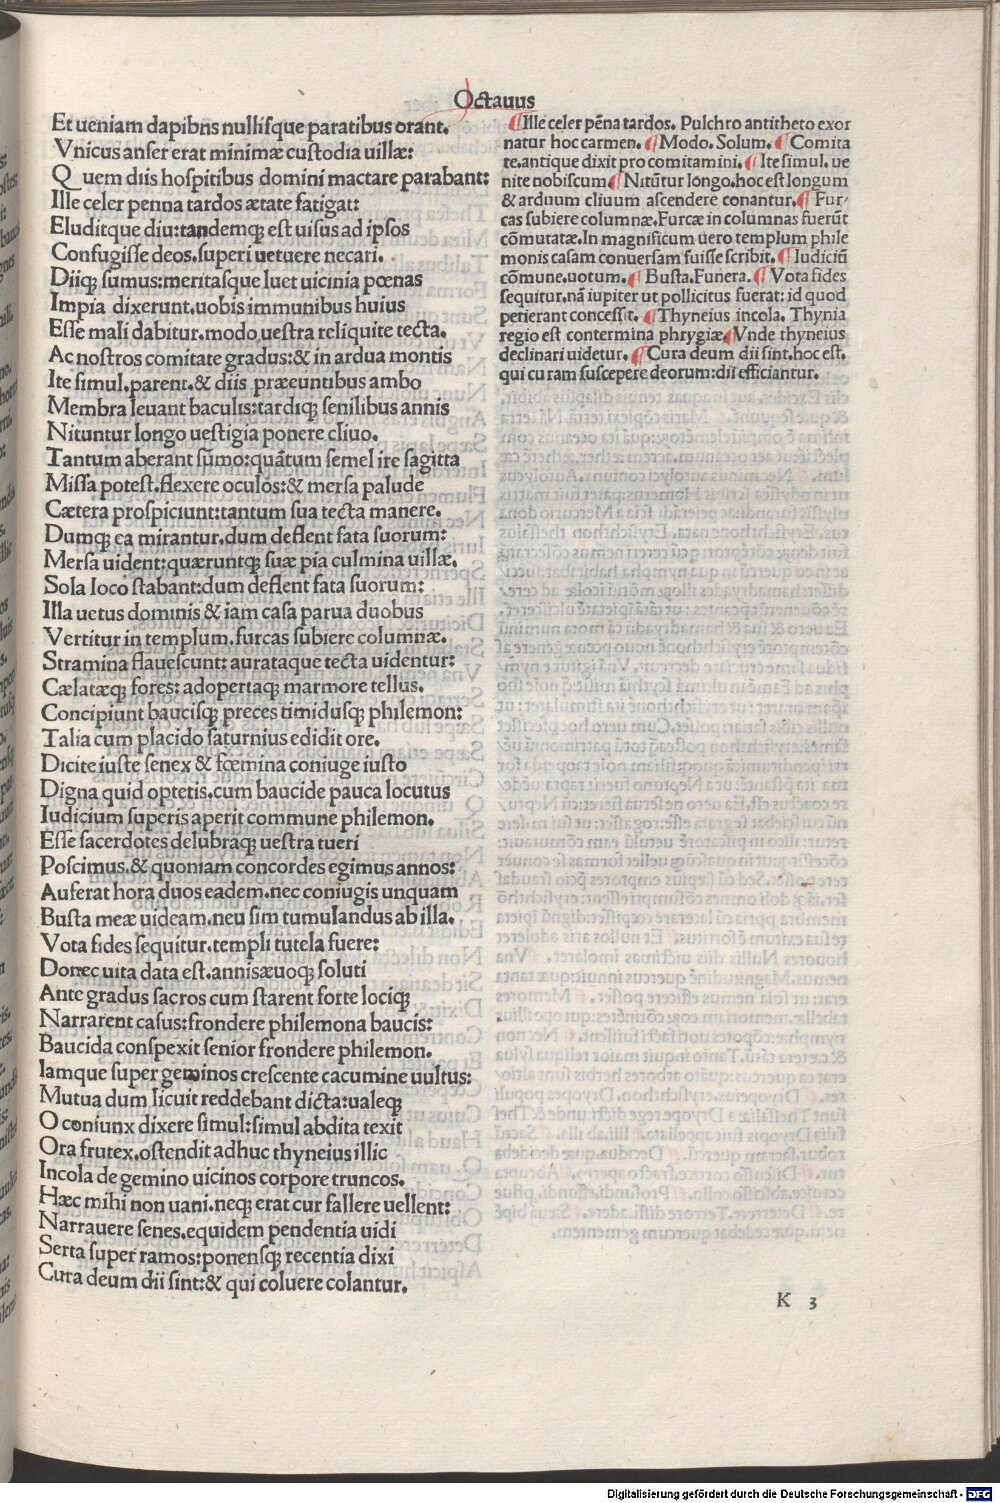 Octauus
Et ueniam dapibns nullisque paratibus orant.
Vnicus anser erat minimæ custodia uillæ:
Quem diis hospitibus domini mactare parabant:
Ille celer penna tardos ætate fatigat:
Eluditque diu:tandemqȝ est uisus ad ipsos
Confugisse deos.superi uetuere necari.
Diiqȝ sumus:meritasque luet uicinia pœnas
Impia dixerunt.uobis immunibus huius
Esse mali dabitur.modo uestra relíquite tecta.
Ac nostros comitate gradus:& in ardua montis
Ite simul.parent.& diis præeuntibus ambo
Membra leuant baculis:tardiqȝ senilibus annis
Nituntur longo uestigia ponere cliuo.
Tantum aberant sūmo:quātum semel ire sagitta
Missa potest.flexere oculos:& mersa palude
Cætera prospiciunt:tantum sua tecta manere.
Dumqȝ ea mirantur.dum deflent fata suorum:
Mersa uident:quæruntqȝ suæ pia culmina uillæ.
Sola loco stabant:dum deflent fata suorum:
Illa uetus dominis & iam casa parua duobus
Vertitur in templum.furcas subiere columnæ.
Stramina flauescunt: aurataque tecta uidentur:
Cælatæqȝ fores: adopertaqȝ marmore tellus.
Concipiunt baucisqȝ preces timidusqȝ philemon:
Talia cum placido saturnius edidit ore.
Dicite iuste senex & fœmina coniuge iusto
Digna quid optetis.cum baucide pauca locutus
Iudicium superis aperit commune philemon.
Esse sacerdotes delubraqȝ uestra tueri
Poscimus.& quoniam concordes egimus annos:
Auferat hora duos eadem.nec coniugis unquam
Busta meæ uideam.neu sim tumulandus ab illa.
Vota fides sequitur.templi tutela fuere:
Donec uita data est.annisæuoqȝ soluti
Ante gradus sacros cum starent forte lociqȝ
Narrarent casus:frondere philemona baucis:
Baucida conspexit senior frondere philemon.
Iamque super geminos crescente cacumine uultus:
Mutua dum licuit reddebant dicta:ualeqȝ
O coniunx dixere simul:simul abdita texit
Ora frutex.ostendit adhuc thyneius illic
Incola de gemino uicinos corpore truncos.
Hæc mihi non uani.neqȝ erat cur fallere uellent:
Narrauere senes.equidem pendentia uidi
Serta super ramos:ponensqȝ recentia dixi
Cura deum dii sint:& qui coluere colantur.
¶Ille celer pēna tardos. Pulchro antitheto exor
natur hoc carmen. ¶Modo. Solum. ¶Comita
te.antique dixit pro comitamini. ¶Ite simul. ue
nite nobiscum ¶Nitūtur longo.hoc est longum
& arduum cliuum ascendere conantur. ¶ Fur-
cas subiere columnæ. Furcæ in columnas fuerūt
cōmutatæ.In magnificum uero templum phile
monis casam conuersam fuisse scribit. ¶ Iudiciū
cōmune.uotum. ¶ Busta. Funera. ¶ Vota fides
sequitur.nā iupiter ut pollicitus fuerat: id quod
petierant concessit. ¶Thyneius incola. Thynia
regio est contermina phrygiæ ¶Vnde thyneius
declinari uidetur. ¶Cura deum dii sint.hoc est.
qui curam suscepere deorum: dii efficiantur.
K 3
Digitalisierung gefördert durch die Deutsche Forschungsgemeinschaft - DFG